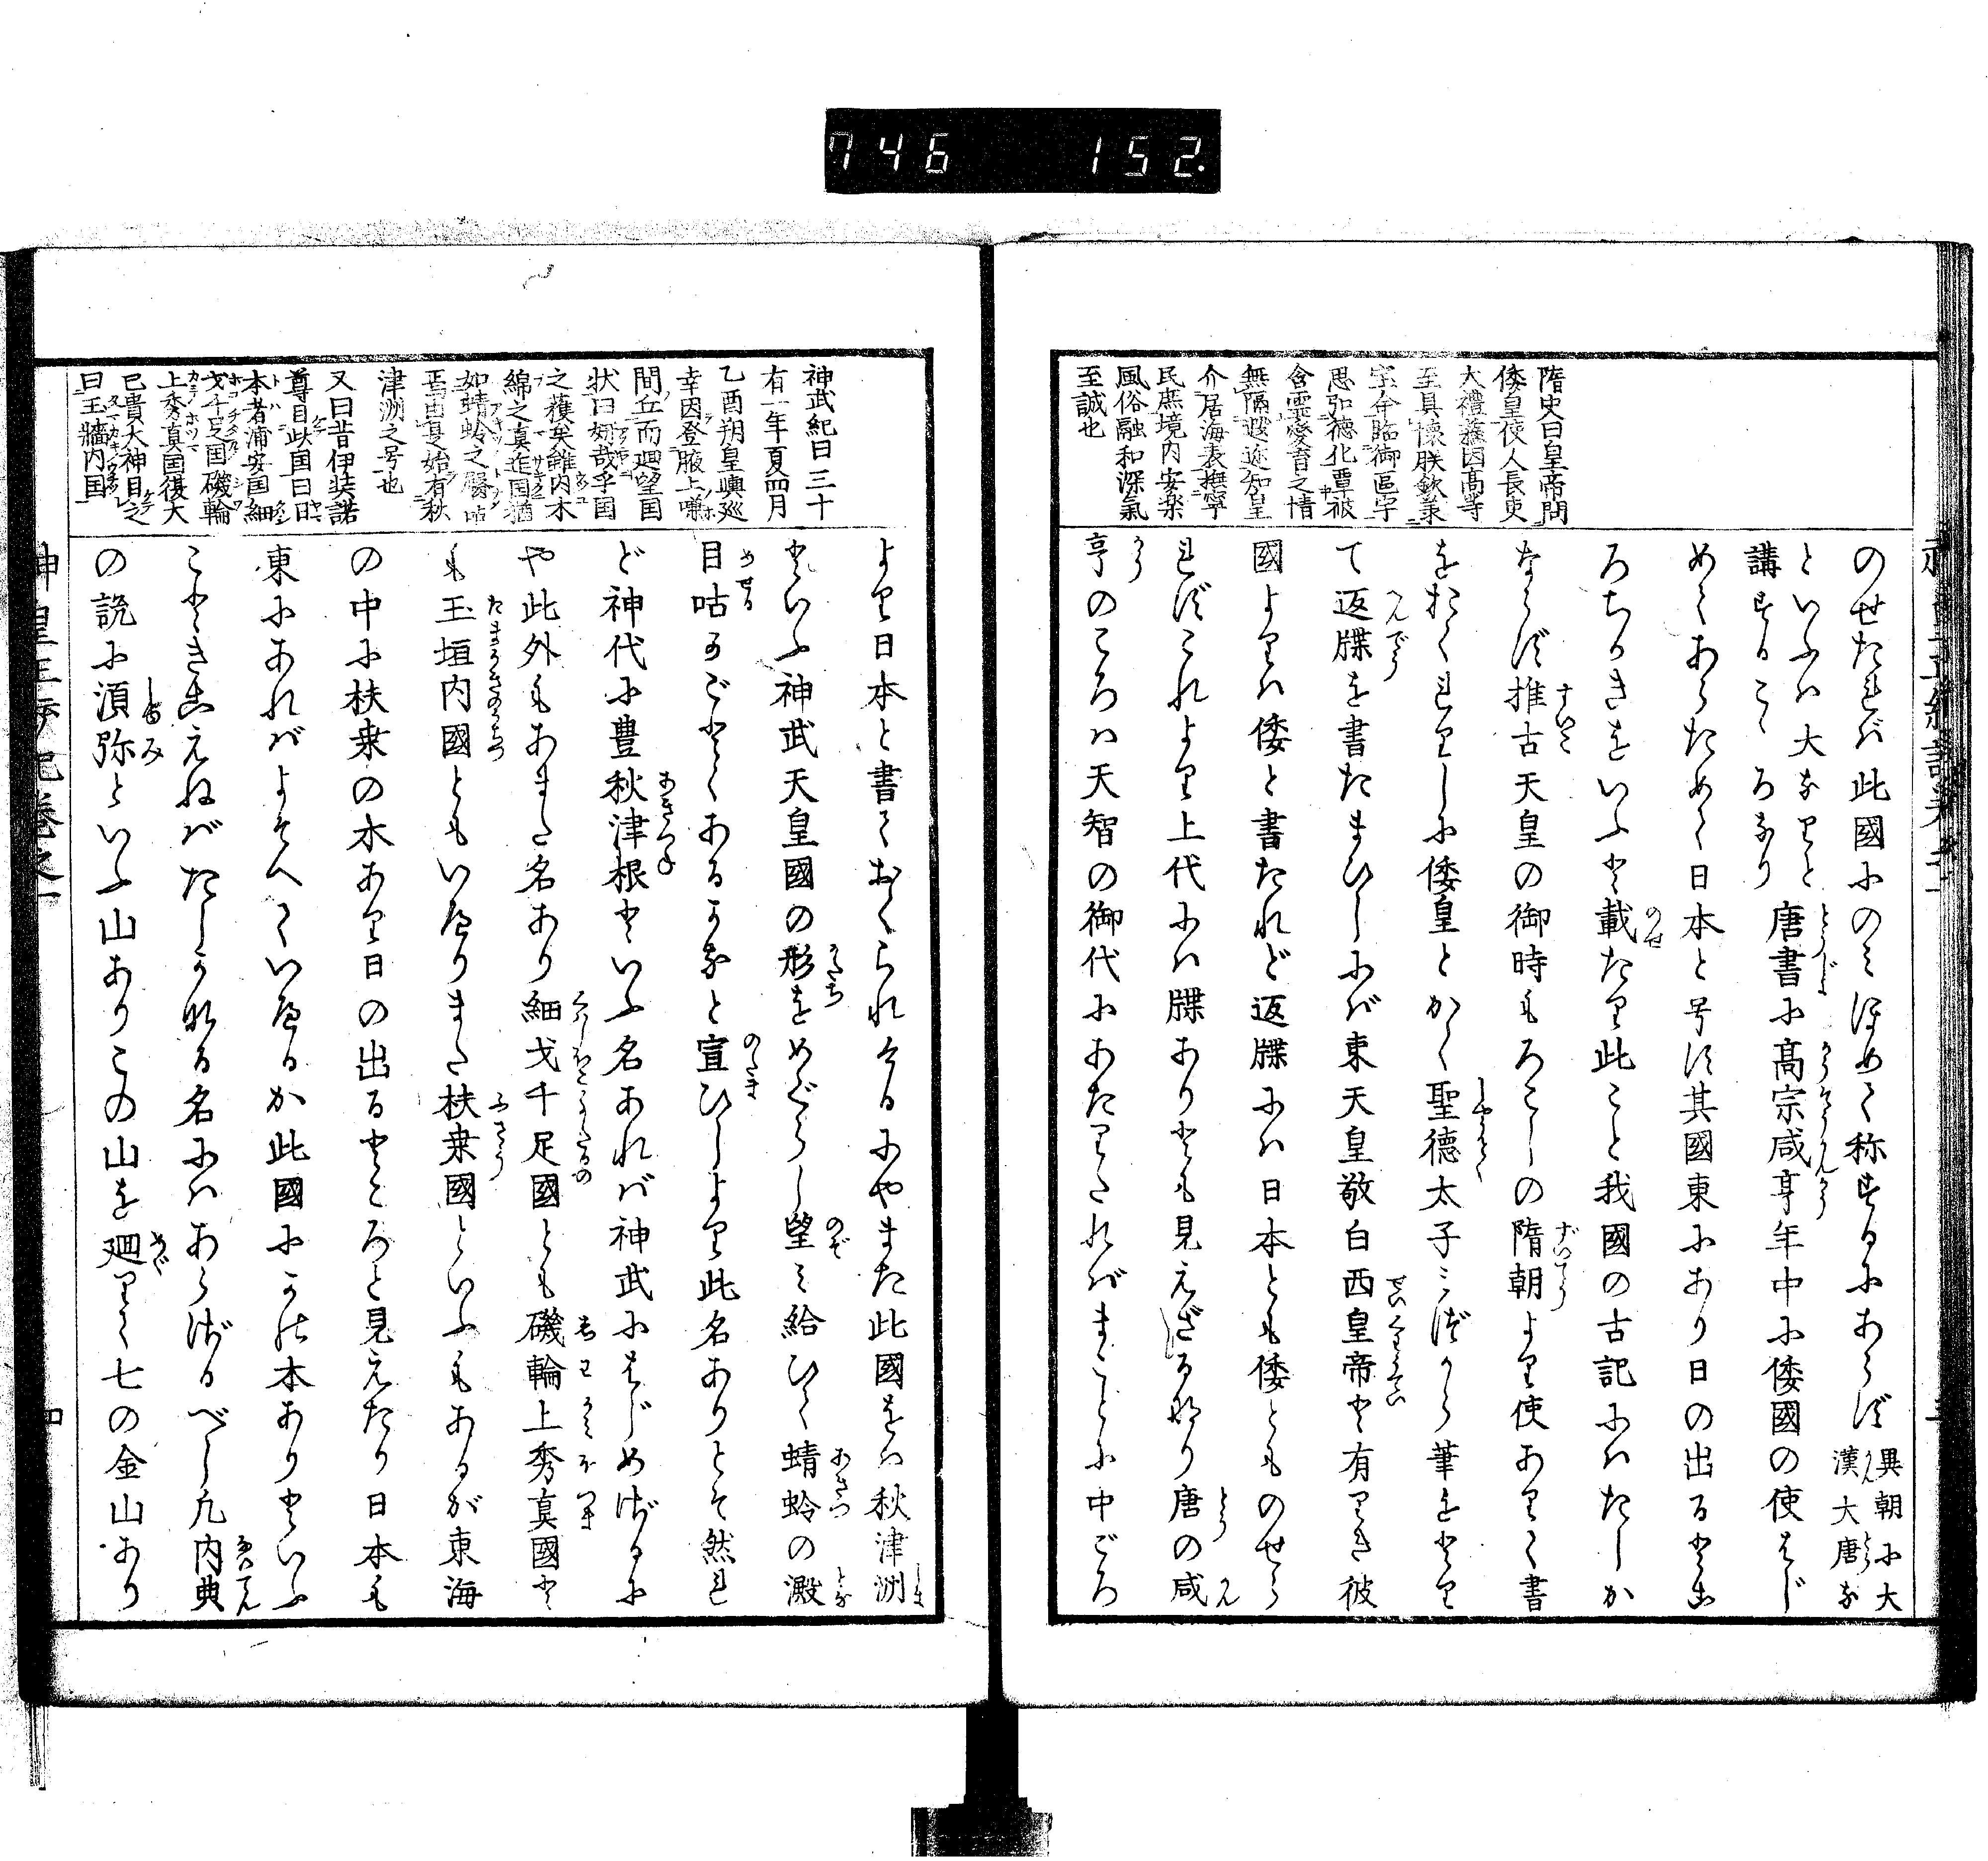 746 152.
隋史曰皇帝問
倭皇使人長吏
大禮蘓因高等
至具懐朕欽兼
宝命臨御區宇
思弘德化覃被
含霊愛育之情
無隔遐迩知皇
介居海表撫寧
民庶境内安楽
風俗融和深氣
至誠也
のせたれば此國にのみほめて称するにあらず異朝に大
漢大唐な
どといふは大なりと
講ずるこゝろなり
唐書に高宗咸亨年中に倭國の使はじ
めてあらためて日本と号す其國東にあり日の出るところ
ろちかきをいふと載たり此こと我國の古記にはたしか
ならず推古天皇の御時もろこしの隋朝より使ありて書
をおくれりしに倭皇とかく聖德太子みづから筆をとり
て返牒を書たまひしには東天皇敬白西皇帝と有りき彼
國よりは倭と書たれど返牒には日本とも倭とものせら
れずこれより上代には牒ありとも見えざるなり唐の咸
亨のころは天智の御代にあたりたればまことに中ごろ
神武紀曰三十
有一年夏四月
乙酉朔皇輿巡
幸因登腋上嗛
間丘而廻望国
状曰妍哉乎国
之獲矣雖内木
綿之真迮国猶
如蜻蛉之臀呫
焉由是始有秋
津洲之号也
又曰昔伊奘諾
尊目此国曰日
本者浦安国細
戈千足国磯輪
上秀真国復大
己貴大神目之
曰玉牆内国
より日本と書ておくられけるにやまた此國をば秋津洲
といふ神武天皇國の形をめぐらし望み給ひて蜻蛉の臀
呫のごとくあるかなと宣ひしより此名ありとぞ然れ
ど神代に豊秋津根といふ名あれば神武にはじめざるに
や此外もあまた名あり細戈千足國とも磯輪上秀真國と
も玉垣内國ともいへりまた扶桒國といふもあるが東海
の中に扶桒の木あり日の出るところと見えたり日本も
東にあればよそへていへるか此國にかの木ありといふ
こときこえねばたしかなる名にはあらざるべし凡内典
の説に須弥といふ山ありこの山を廻りて七の金山あり
神皇正統記巻之一
四